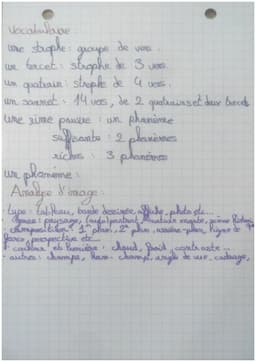 Vocabulaire
une strophe : groupe de vers.
un tercet : strophe de 3 vers.
un quatrain : strophe de 4 vers.
un sonnet : 14 vers, de 2 quatrains et deux tercets
une rime pauvre : un phonème
suffisante : 2 phonèmes
riches : 3 phonèmes
un phonème :
Analyse d'image :
type : tableau, bande dessinée, affiche, photo etc...
genre : paysage, (auto)portrait, nature morte, scène
composition : 1er plan, 2e plan, arrière-plan, lignes de
force, perspective etc...
couleur et lumière : chaud, froid, contraste...
autres : champs, hors-champ, angle de vue, cadrage,